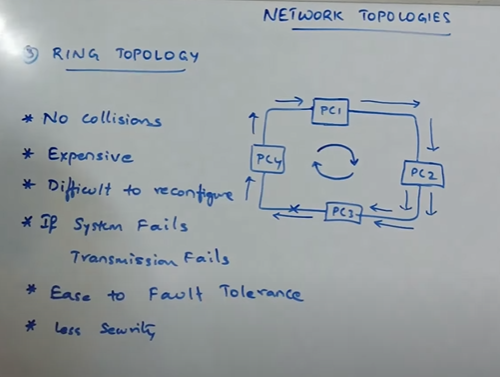 NETWORK TOPOLOGIES
3) RING TOPOLOGY
* No collisions
* Expensive
* Difficult to reconfigure
* If System Fails
Transmission Fails
* Ease to Fault Tolerance
* Less Security
PC1
PC4
PC2
PC3